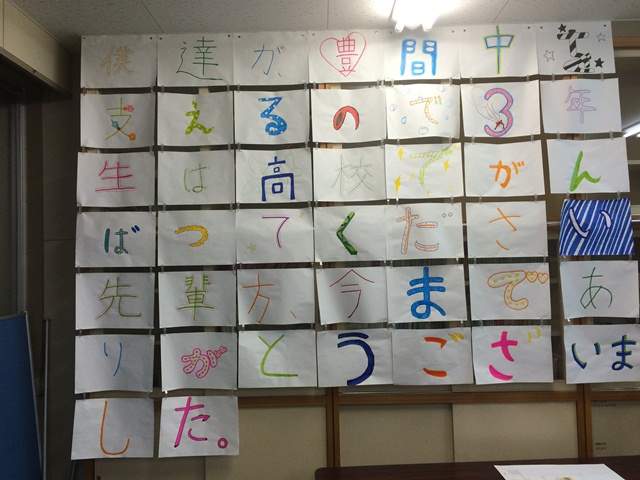 僕達が、豊間中を
支えるので3年
生は高校でがん
ばってください
先輩方、今まであ
りがとうございま
した。